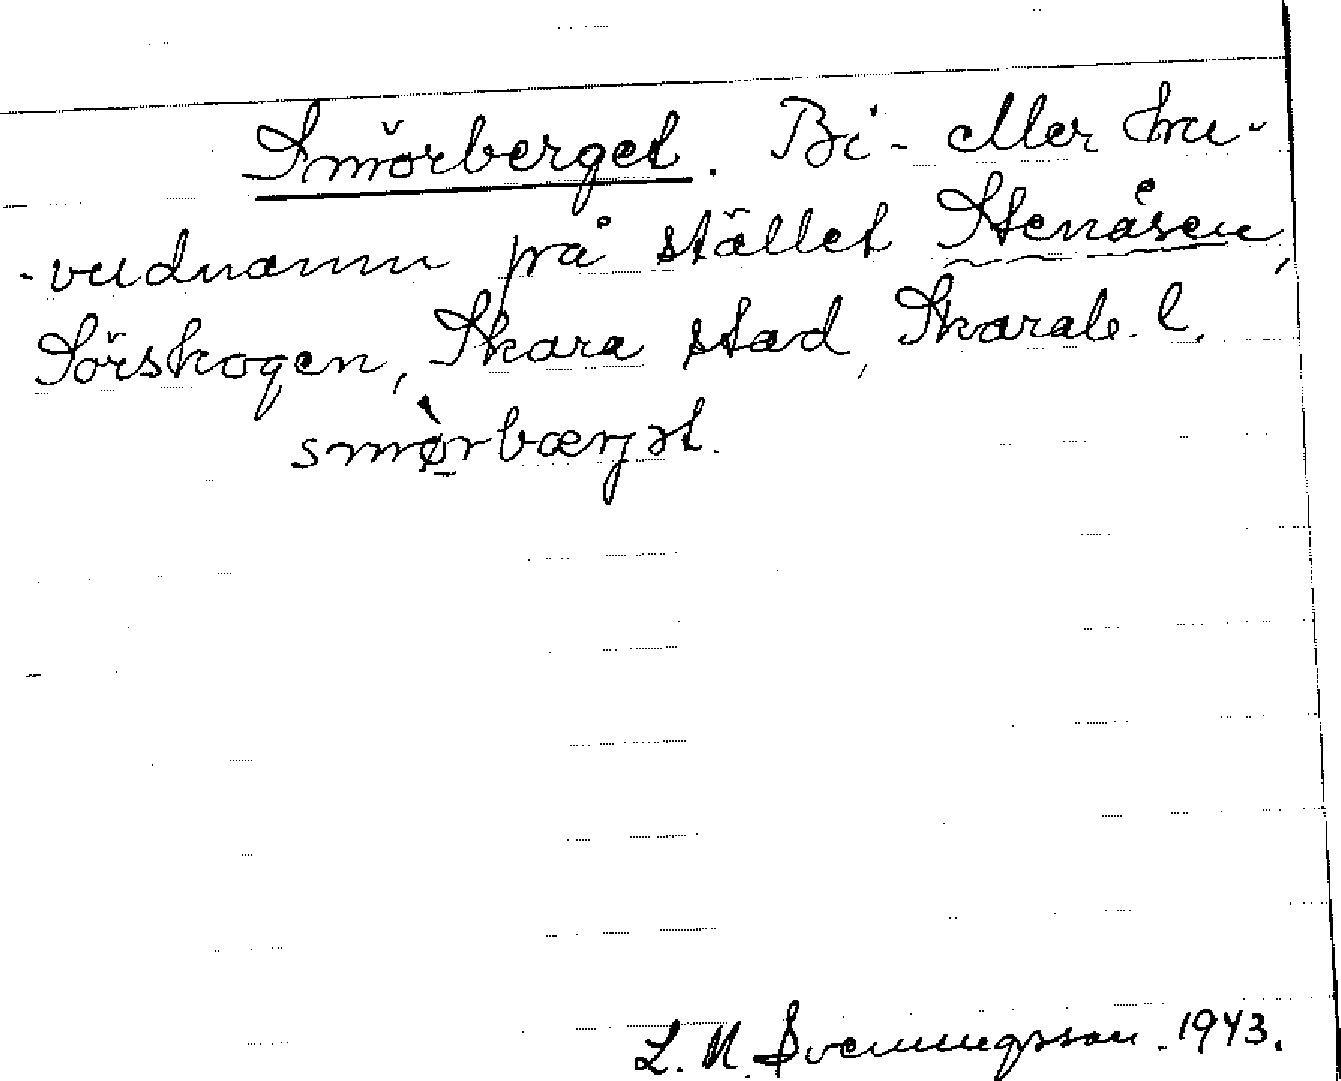 Smörberget. Bi- eller hu-
-vudnamn på stället Stenåsen,
Sörskogen, Skara stad, Skarab. l.
smø̀rbærjət.
L. N. Svenningsson. 1943.